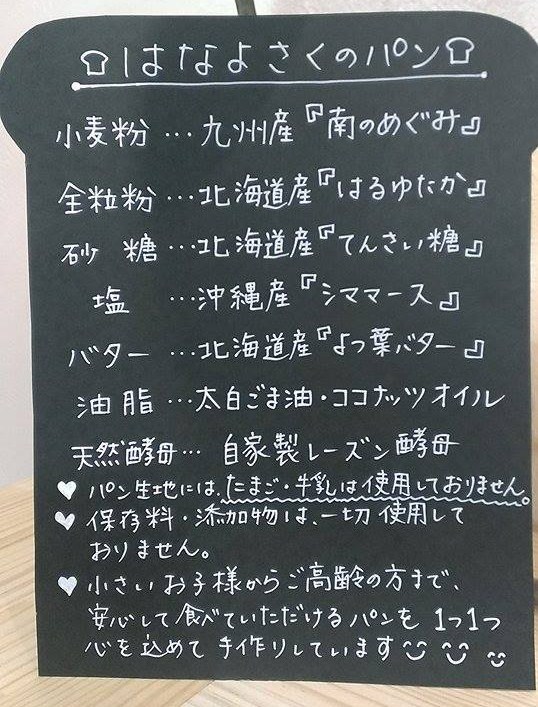 はなよさくのパン
小麦粉…九州産『南のめぐみ』
全粒粉…北海道産『はるゆたか』
砂糖…北海道産『てんさい糖』
塩…沖縄産『シママース』
バター…北海道産『よつ葉バター』
油脂…太白ごま油・ココナッツオイル
天然酵母…自家製レーズン酵母
♥パン生地には、たまご・牛乳は使用しておりません。
♥保存料・添加物は、一切使用して
おりません。
♥小さいお子様からご高齢の方まで、
安心して食べていただけるパンを1つ1つ
心を込めて手作りしています